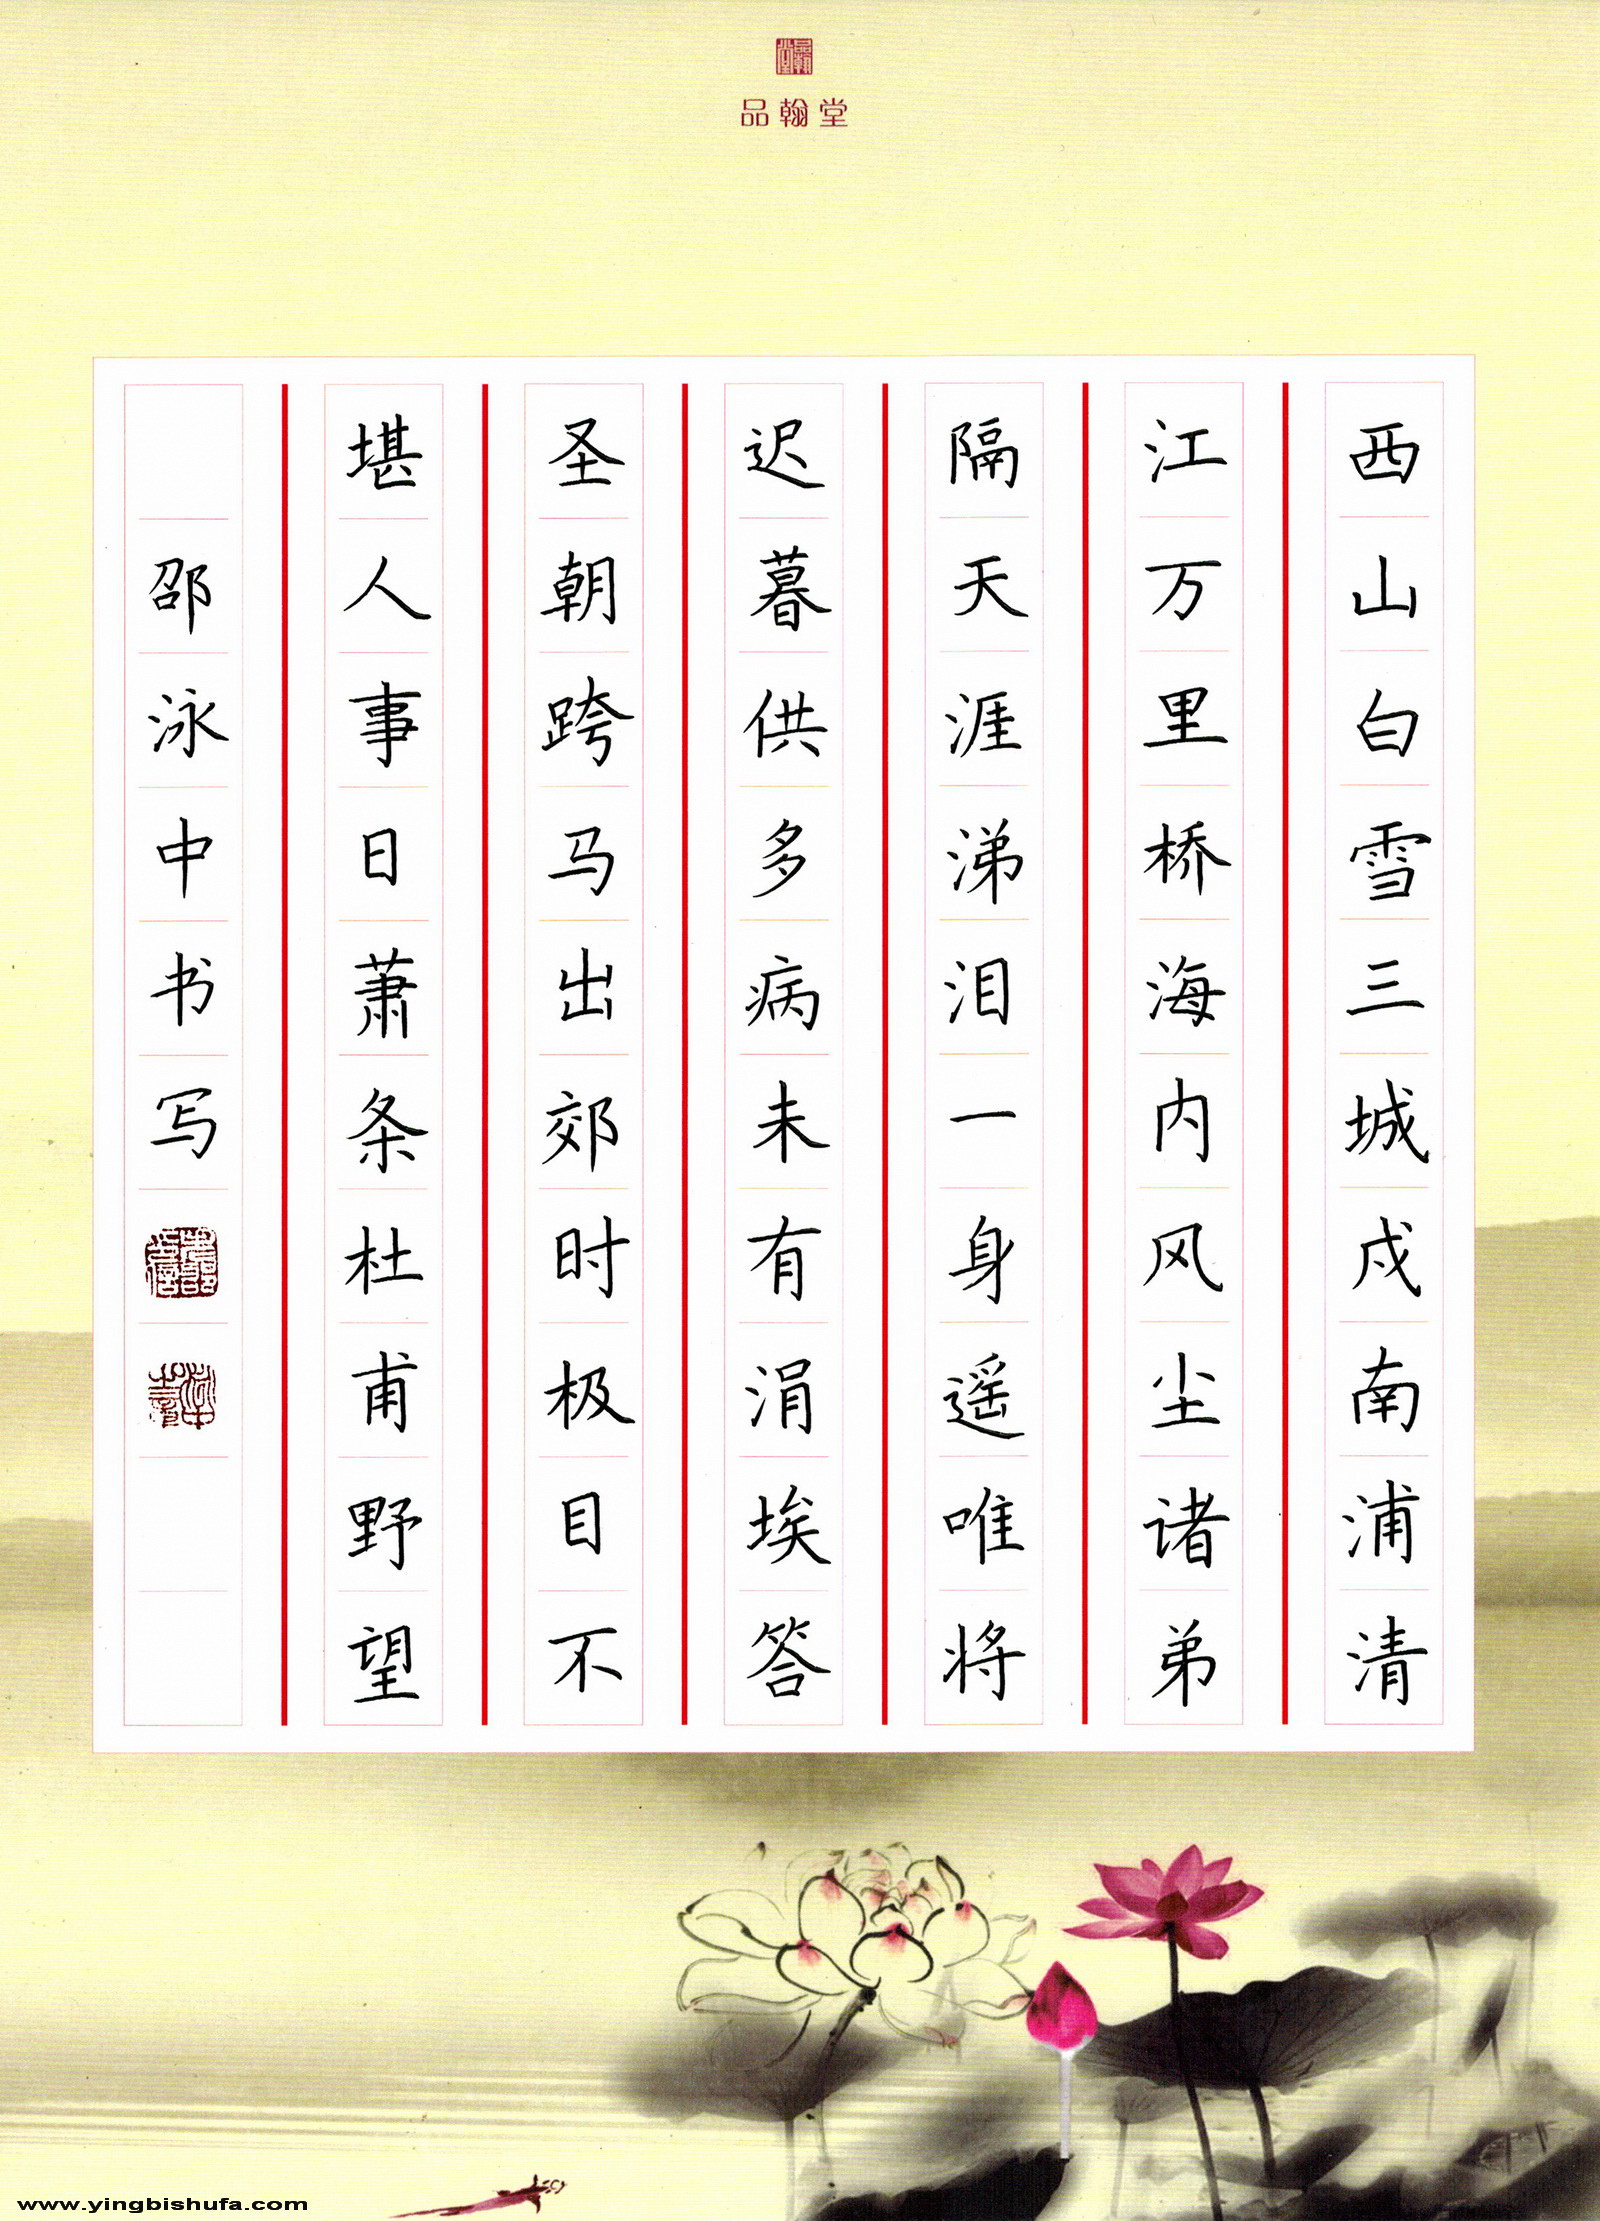 品翰堂
西山白雪三城戍南浦清
江万里桥海内风尘诸弟
隔天涯涕泪一身遥唯将
迟暮供多病未有涓埃答
圣朝跨马出郊时极目不
堪人事日萧条杜甫野望
邵泳中书写
www.yingbishufa.com